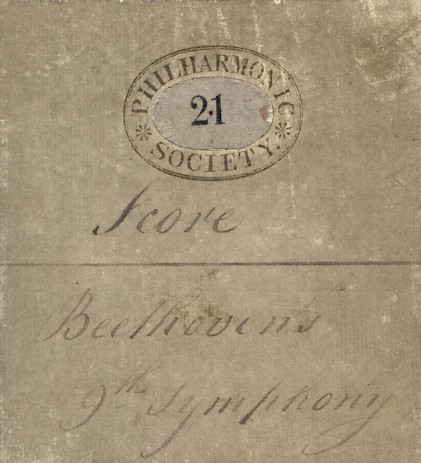 PHILHARMONIC
21
SOCIETY.
Score
Beethoven's
9th Symphony